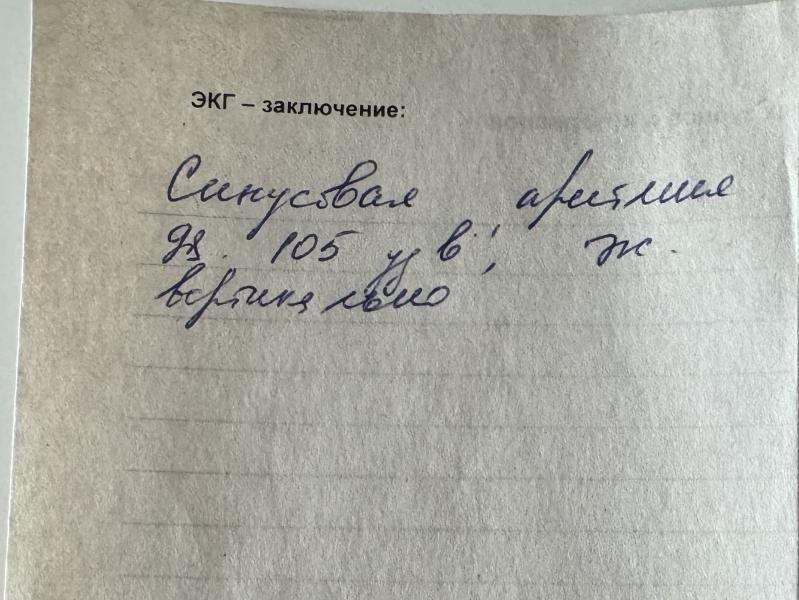 ЭКГ – заключение:
Синусовая аритмия
95. 105 уд в', ж.
вертикально